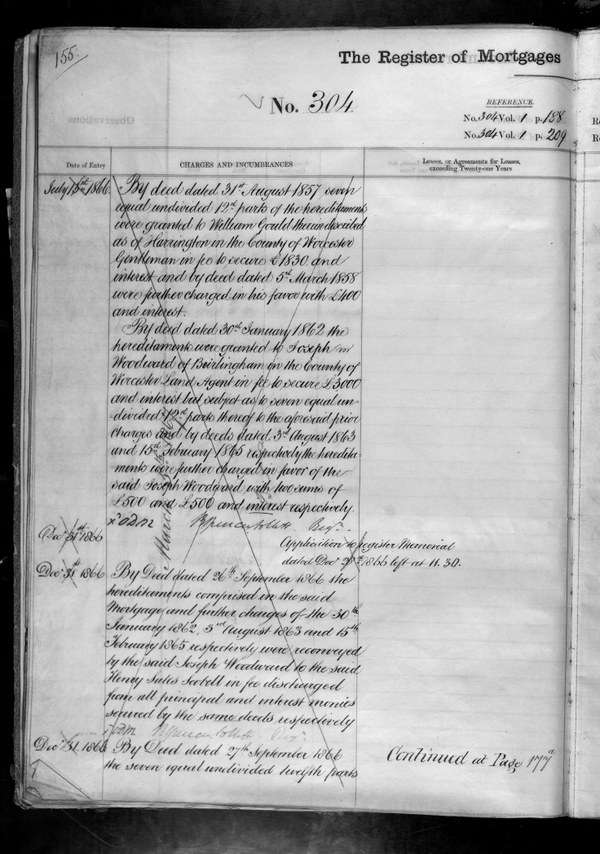 155.
The Register of Mortgages
No. 304
REFERENCE.
No. 304 Vol. 1 p. 158
No. 304 Vol. 1 p. 209
Date of Entry
CHARGES AND INCUMBRANCES
Leases, or Agreements for Leases,
exceeding Twenty-one Years
July 1866
By deed dated 31st August 1857 seven
equal undivided 12th parts of the hereditaments
were granted to William Gould therein described
as of Harrington in the County of Worcester
Gentleman in fee to secure £1830 and
interest and by deed dated 5th March 1858
were further charged in his favor with £400
and interest.
By deed dated 30th January 1862 the
hereditaments were granted to Joseph
Woodward of Birlingham in the County of
Worcester Land Agent in fee to secure £3000
and interest but subject as to seven equal un-
divided 12th parts thereof to the aforesaid prior
charges and by deeds dated 3rd August 1863
and 15th February 1865 respectively the heredita-
ments were further charged in favor of the
said Joseph Woodward with two sums of
£500 and £500 and interest respectively.
Regr.
Decr 31st 1866
Application to register Memorial
dated Decr 28th 1866 left at 11.30.
Decr 31st 1866
By Deed dated 26th September 1866 the
hereditaments comprised in the said
Mortgage and further charges of the 30th
January 1862, 3rd August 1863 and 15th
February 1865 respectively were reconveyed
by the said Joseph Woodward to the said
Henry Sales Scobell in fee discharged
from all principal and interest monies
secured by the same deeds respectively
Regr.
Decr 31 1866
By Deed dated 27th September 1866
the seven equal undivided twelfth parts
Continued at Page 177a